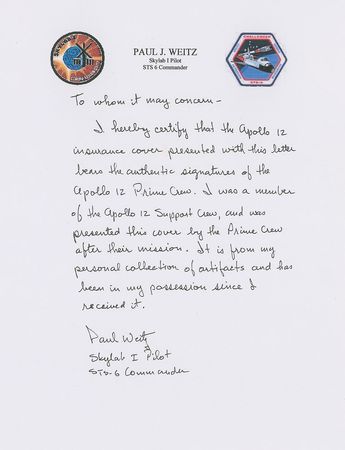 SKYLAB I
CHALLENGER
PAUL J. WEITZ
Skylab I Pilot
STS 6 Commander
To whom it may concern -
I hereby certify that the Apollo 12
insurance cover presented with this letter
bears the authentic signatures of the
Apollo 12 Prime Crew. I was a member
of the Apollo 12 Support Crew, and was
presented this cover by the Prime Crew
after their mission. It is from my
personal collection of artifacts and has
been in my possession since I
received it.
Paul Weitz
Skylab I Pilot
STS-6 Commander